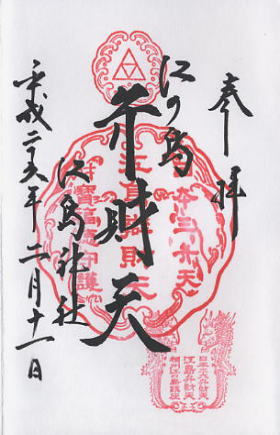 奉拝
江の島
弁財天
江島神社
平成二十六年二月十一日
日本三弁天
江島弁財天
財寶福徳守護